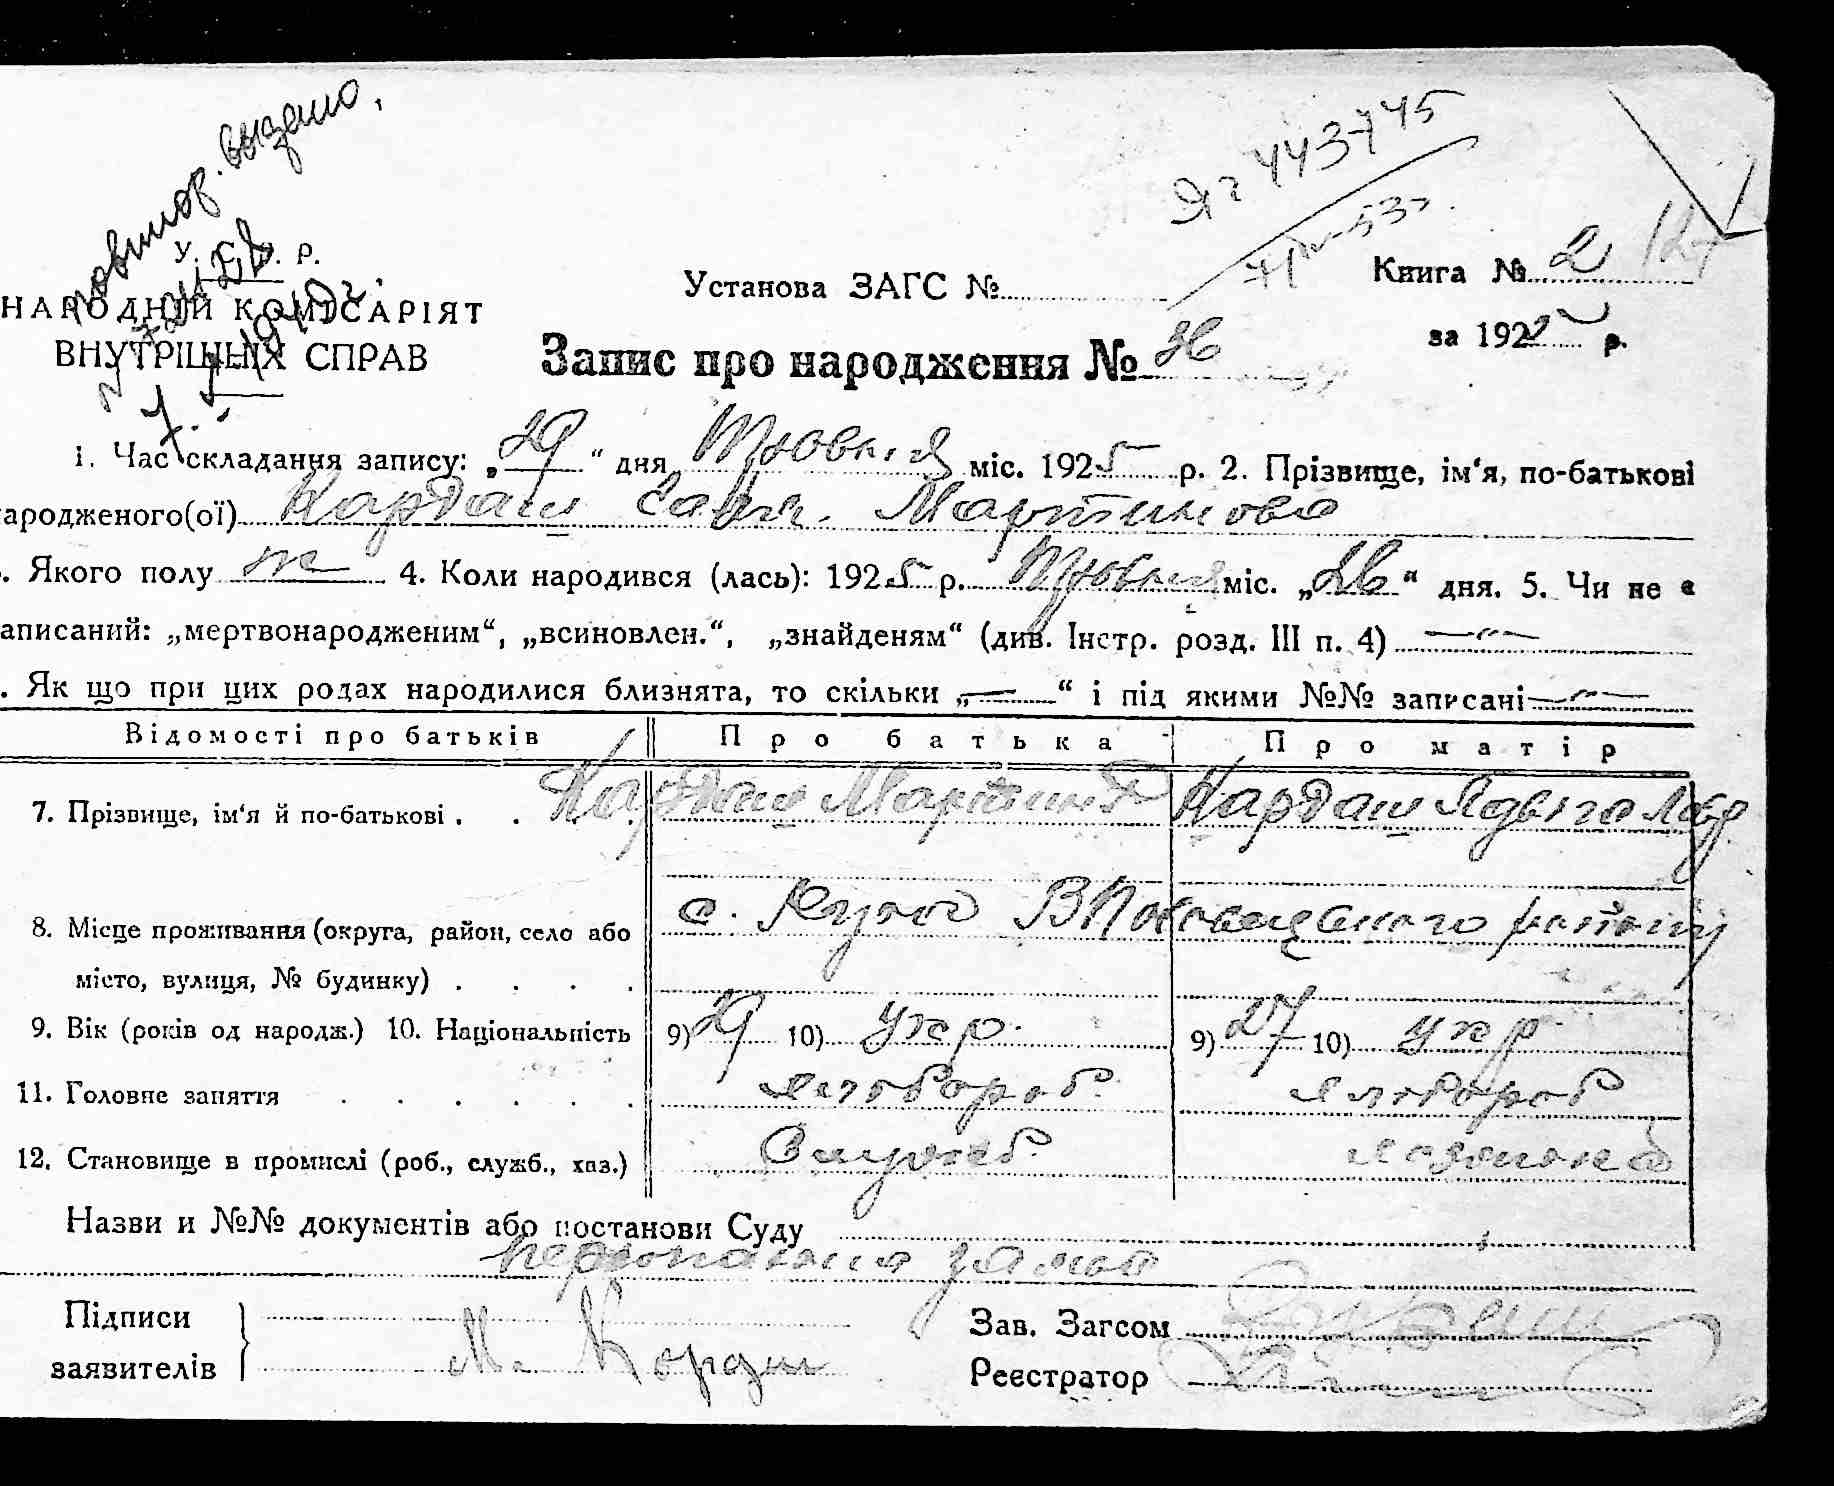 повтор. выдано.
Яг 443745
У. С. Р. Р.
НАРОДНІЙ КОМІСАРІЯТ
ВНУТРІШНІХ СПРАВ
Установа ЗАГС №
Книга № 2
за 1925 р.
Запис про народження № 36
1. Час складання запису: „29“ дня Травня міс. 1925 р. 2. Прізвище, ім‘я, по-батькові
ародженого(ої) Кардаш Мартинова
. Якого полу ж 4. Коли народився (лась): 1925 р. Травня міс. „26“ дня. 5. Чи не
аписаний: „мертвонародженим“, „всиновлен.“, „знайденям“ (див. Інстр. розд. III п. 4) —„—
. Як що при цих родах народилися близнята, то скільки „—“ і під якими №№ записані —„—
Відомості про батьків Про батька Про матір
7. Прізвище, ім‘я й по-батькові . . Кардаш Мартин Кардаш Ядвіга
8. Місце проживання (округа, район, село або с. району
місто, вулиця, № будинку) . . . .
9. Вік (років од народж.) 10. Національність 9) 29 10) укр. 9) 27 10) укр
11. Головне заняття . . . . . . хлібороб. хлібороб
12. Становище в промислі (роб., служб., хаз.) Служб.
Назви и №№ документів або постанови Суду
заява
Підписи
заявителів М. Кордаш
Зав. Загсом
Реєстратор